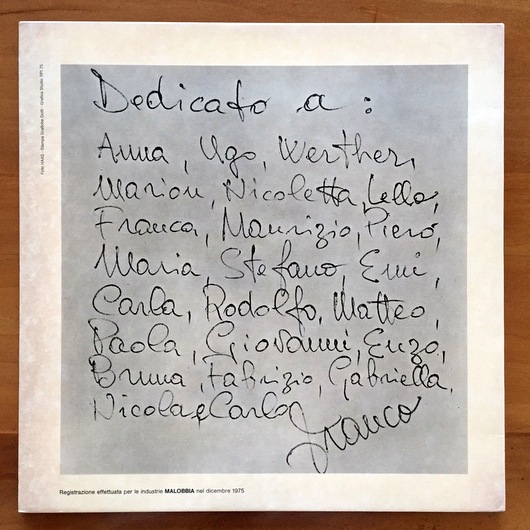 Dedicato a :
Anna, Ugo, Werther,
Marion, Nicoletta, Lello,
Franca, Maurizio, Piero,
Maria, Stefano, Emi,
Carla, Rodolfo, Matteo,
Paola, Giovanni, Enzo,
Bruna, Fabrizio, Gabriella,
Nicola e Carlo
Franco
Registrazione effettuata per le industrie MALOBBIA nel dicembre 1975